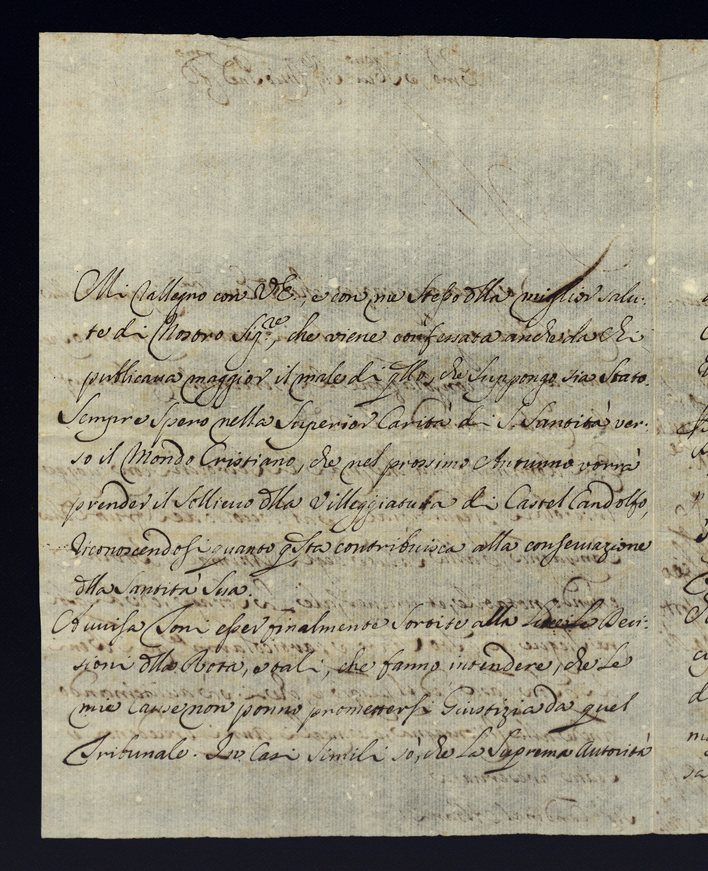 Mi rallegro con V.E., e con me stesso dlla miglior salu-
te di Nostro Sig.re, che viene confessata anche da chi
publicava maggior il male di qllo, che suppongo sia stato.
Sempre spero nella superior Carità di S. Santità ver-
so il Mondo Cristiano, che nel prossimo Autunno vorrà
prender il sollievo dlla Villeggiatura di Castel Gandolfo,
riconoscendosi quanto qsta contribuisca alla conservazione
dlla Santità Sua.
Avvisa Toni esser finalmente sortite alla Deci-
sioni dlla Rota, e tali, che fanno intendere, che le
mie Cause non ponno promettersi Giustizia da quel
Tribunale. In Casi simili sò, che la Suprema Autorità